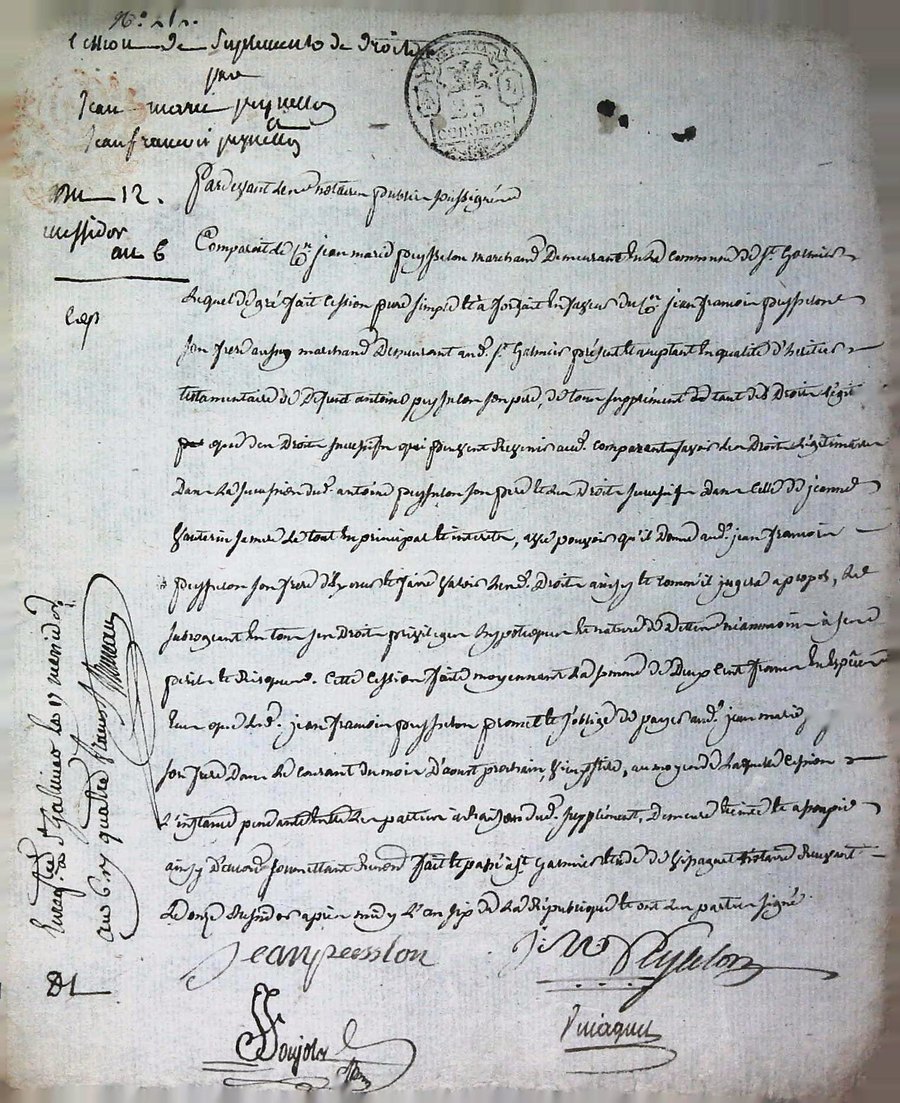 Cession de Suplements de droits
par
Jean marie peyssellon
Jean francois peyssellon
REP. FRA.
25
centimes
Du 12.
messidor
an 6
Pardevant le notaire public soussigné
Comparoit le Cen. jean marie peysselon marchand Demeurant en la commune de St. Galmier
Lequel de gré fait cession pure simple et a forfait en faveur du Cen. jean francois peysselon
son frere aussy marchand Demeurant aud. St. Galmier présent et acceptant en qualité d'heritier
testamentaire de Defunt antoine peysselon son pere, de tous supplément tant des Droits légit
que des Droits successifs qui peuvent Revenir aud. comparant savoir les Droits légitimaires
Dans la succession dud. antoine peysselon son pere et les Droits successifs Dans celle de jeanne
sa mere le tout en principal et interets, avec pouvoir qu'il Donne aud. jean francois
peysselon son frere d'exercer et faire valoir lesd. Droits ainsy et comme il jugera a propos, le
subrogeant en tous ses Droits privileges hypotheques et nature de Dettes néanmoins à ses
perils et Risques. Cette Cession faite moyennant la somme de Deux Cent francs en espèces
que led. jean francois peysselon promet et s'oblige de payer aud. jean marie
son frere Dans le courant du mois D'aoust prochain, au moyen de laquelle cession
L'instance pendante entre les parties à Raison dud. supplément, Demeure éteinte et assoupie
ainsy D'accord soumettant Renond. fait et passé à St. Galmier etude de notaire Recevant
Le onze messidor après midy L'an six de la République et ont les parties signé.
Enregistré à St. Galmier le 17 messidor
an 6. quatre francs
Jean peesslon
J. M. Peysselon